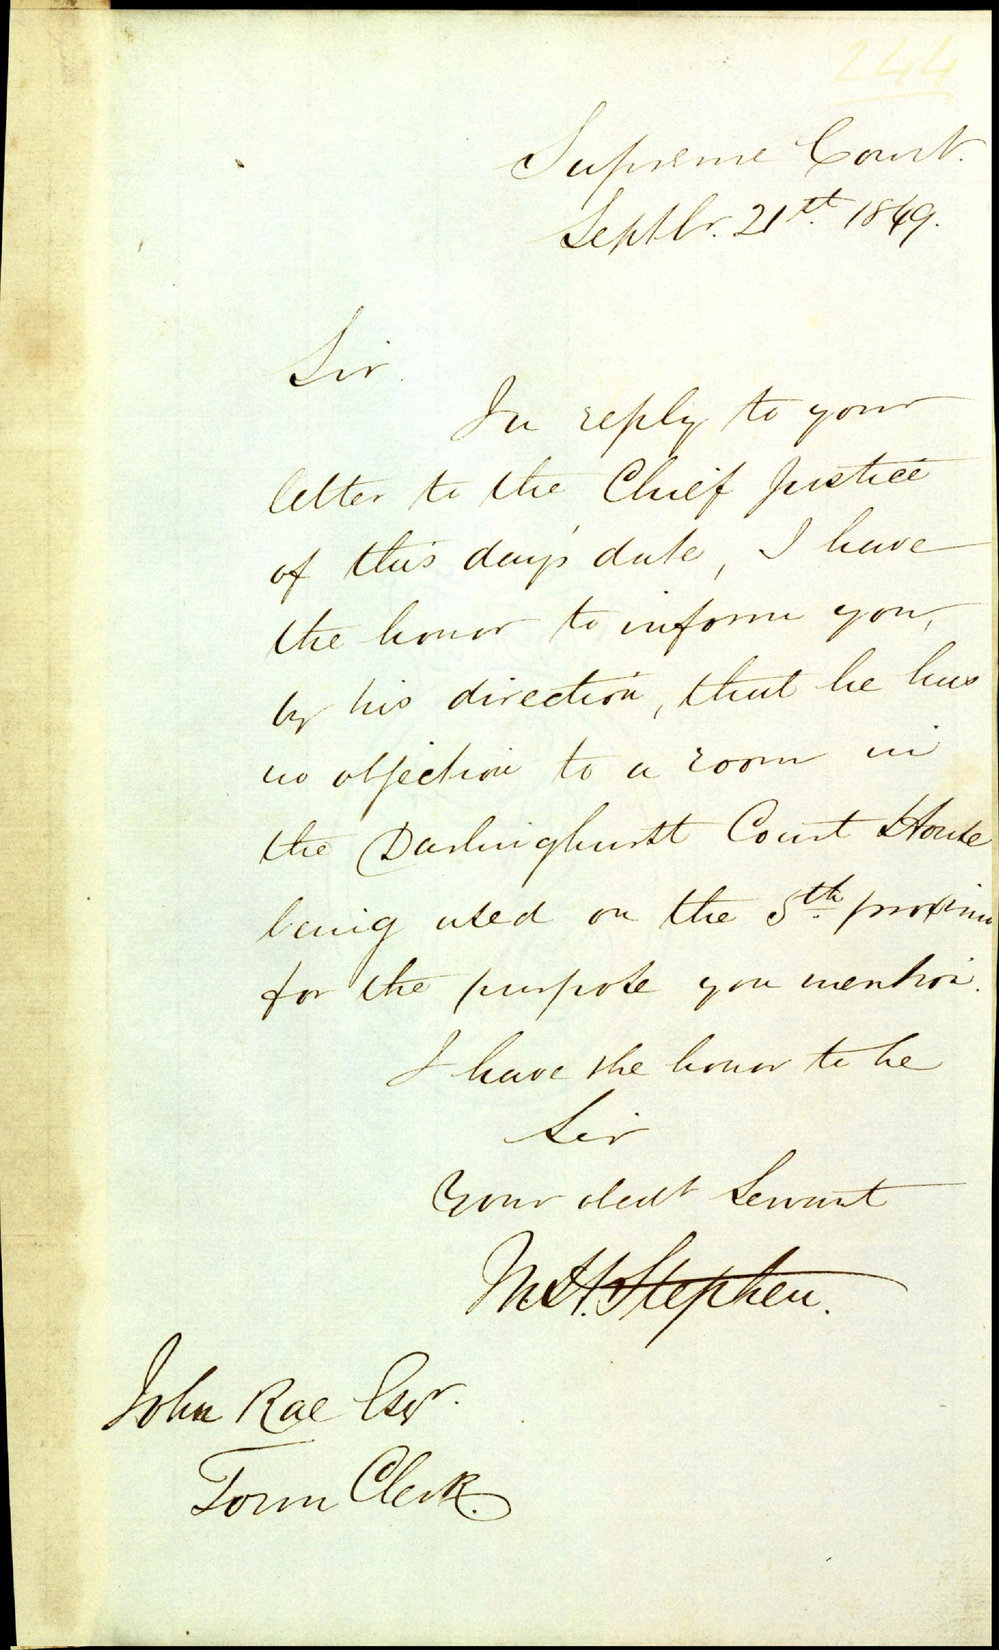 244
Supreme Court.
Septbr. 21st. 1849.
Sir.
In reply to your
letter to the Chief Justice
of this day's date, I have
the honor to inform you,
by his direction, that he has
no objection to a room in
the Darlinghurst Court House
being used on the 5th. proximo
for the purpose you mention.
I have the honor to be
Sir
Your obedt Servant
M. H. Stephen.
John Rae Esqr.
Town Clerk.